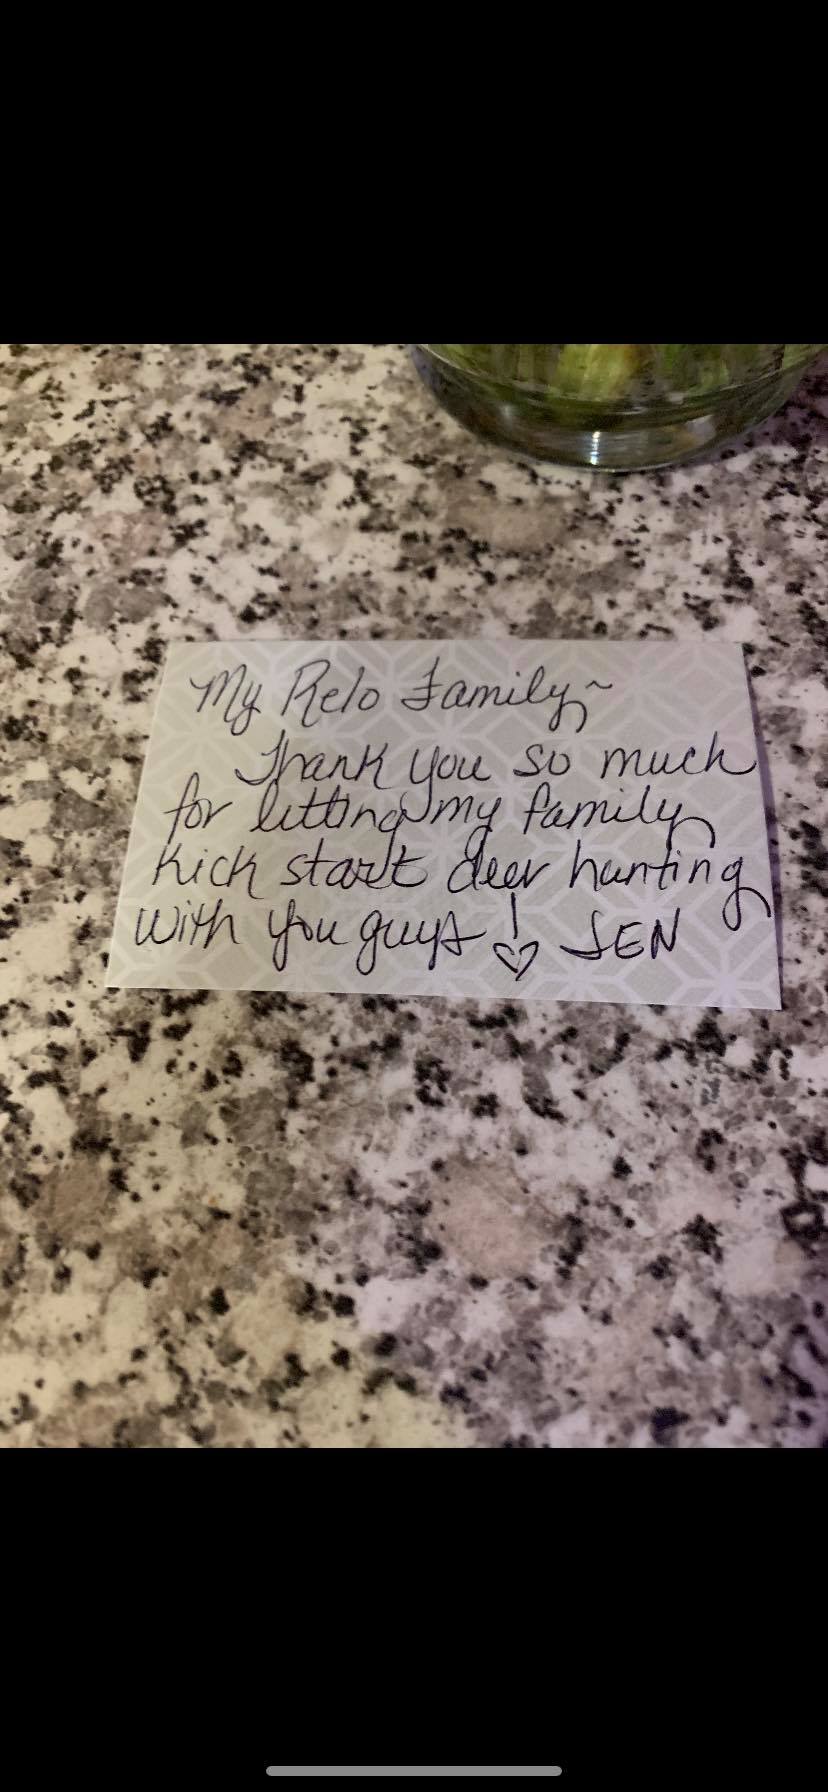 My Relo Family~
Thank you so much
for letting my family
kick start deer hunting
with you guys! ♡ JEN